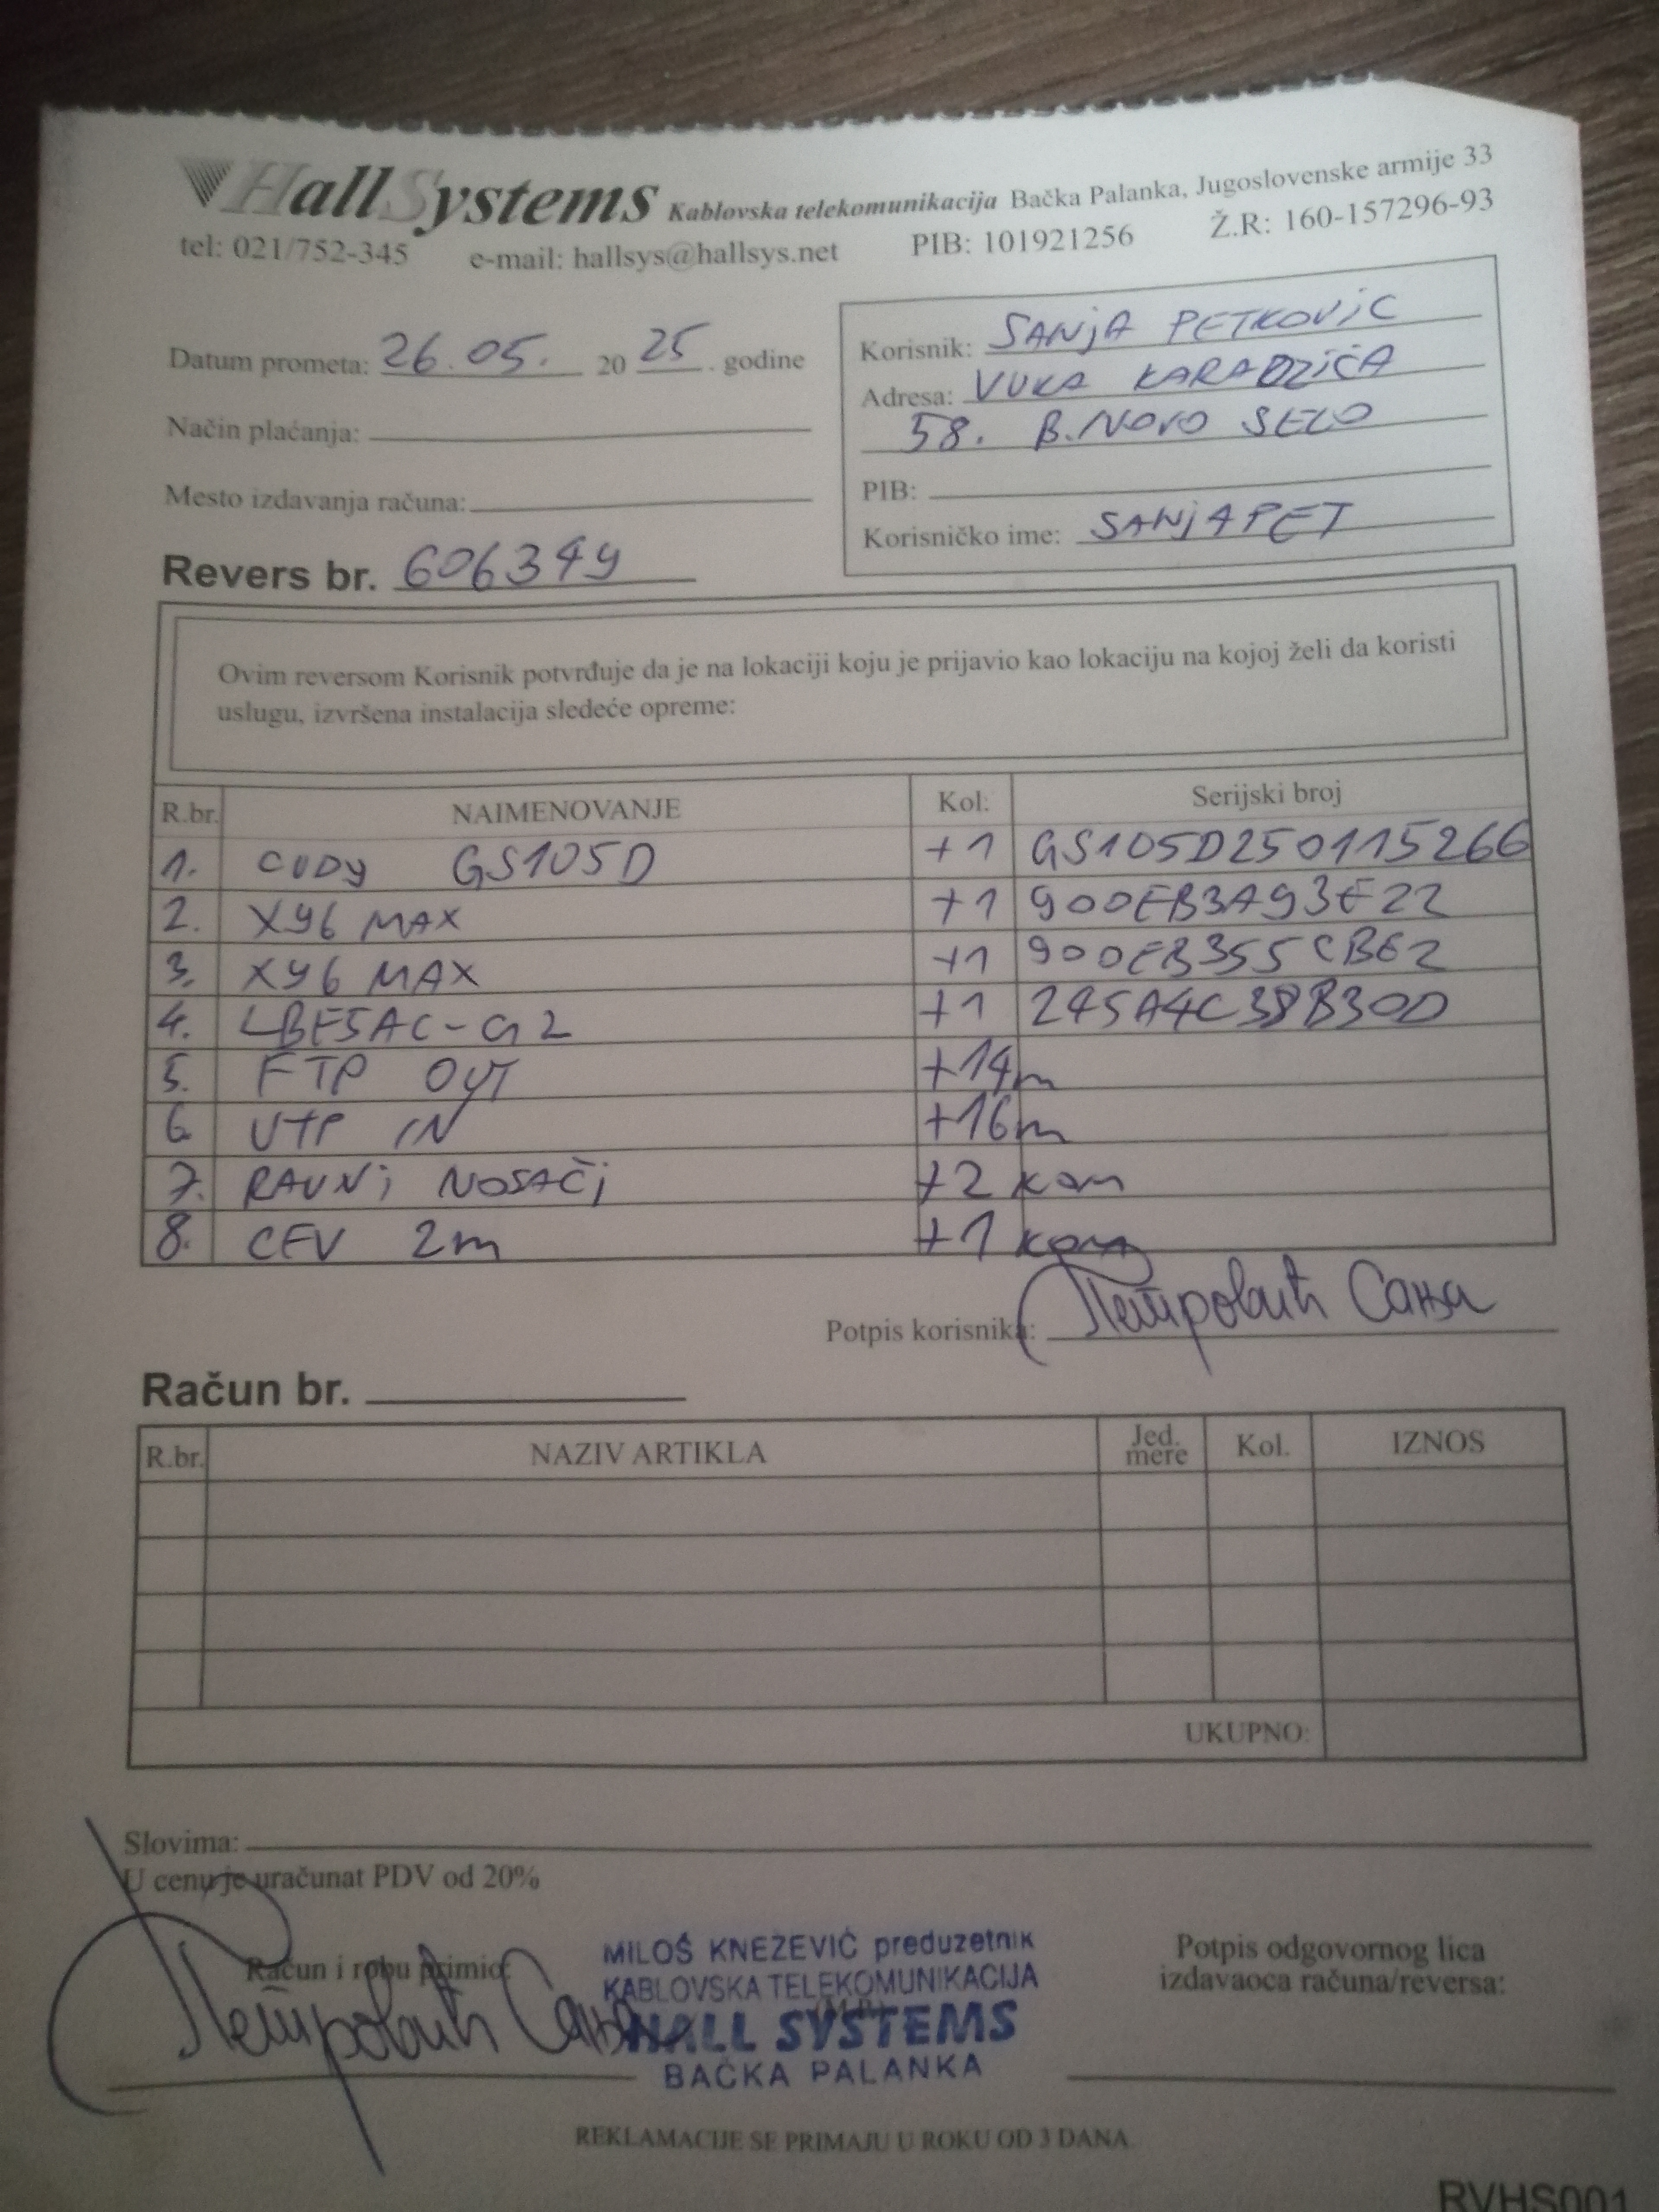 HallSystems Kablovska telekomunikacija Bačka Palanka, Jugoslovenske armije 33
tel: 021/752-345 e-mail: hallsys@hallsys.net PIB: 101921256 Ž.R: 160-157296-93
Datum prometa: 26.05. 2025. godine
Način plaćanja:
Mesto izdavanja računa:
Revers br. 606349
Korisnik: SANjA PETKOVIC
Adresa: VUKA KARADZIĆA
58. B.NOVO SELO
PIB:
Korisničko ime: SANjAPET
Ovim reversom Korisnik potvrđuje da je na lokaciji koju je prijavio kao lokaciju na kojoj želi da koristi
uslugu, izvršena instalacija sledeće opreme:
R.br. NAIMENOVANJE Kol. Serijski broj
1. CUDY GS105D +1 GS105D250115266
2. X96 MAX +1 900EB3A93E22
3. X96 MAX +1 900EB355CB62
4. LBE5AC-G2 +1 245A4C38B30D
5. FTP OUT +14m
6. UTP IN +16m
7. RAVNi NOSAČi +2 kom
8. CEV 2m +1 kom
Potpis korisnika: Петровић Сања
Račun br.
R.br. NAZIV ARTIKLA Jed. mere Kol. IZNOS
UKUPNO:
Slovima:
U cenu je uračunat PDV od 20%
Račun i robu primio:
Петровић Сања
MILOŠ KNEŽEVIĆ preduzetnik
KABLOVSKA TELEKOMUNIKACIJA
(M.P.)
HALL SYSTEMS
BAČKA PALANKA
Potpis odgovornog lica
izdavaoca računa/reversa:
REKLAMACIJE SE PRIMAJU U ROKU OD 3 DANA.
RVHS001